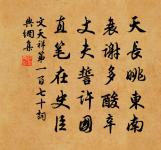 天長眺東南
衰謝多酸辛
丈夫誓許國
直筆在史臣
文天祥第一百七十詞
典網集